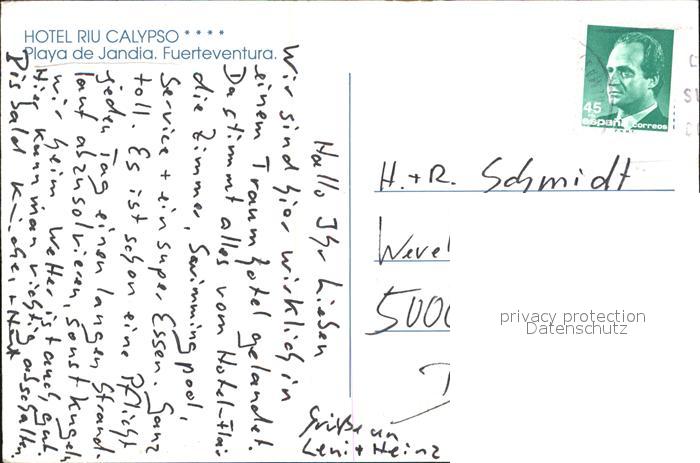 HOTEL RIU CALYPSO ****
Playa de Jandia. Fuerteventura.
Hallo Ihr Lieben
Wir sind hier wirklich in
einem Traumhotel gelandet.
Da stimmt alles vom Hotel-Flair
die Zimmer, Swimmingpool,
Service + ein super Essen. Ganz
toll. Es ist schon eine Pflicht
jeden Tag einen langen Strand-
lauf abzusolvieren, sonst kugeln
wir heim. Wetter ist auch gut.
Hier kann man richtig abschalten
Bis bald
Grüße an
Leni + Heinz
45
españa correos
H. + R. Schmidt
Wevel
5000
D
privacy protection
Datenschutz